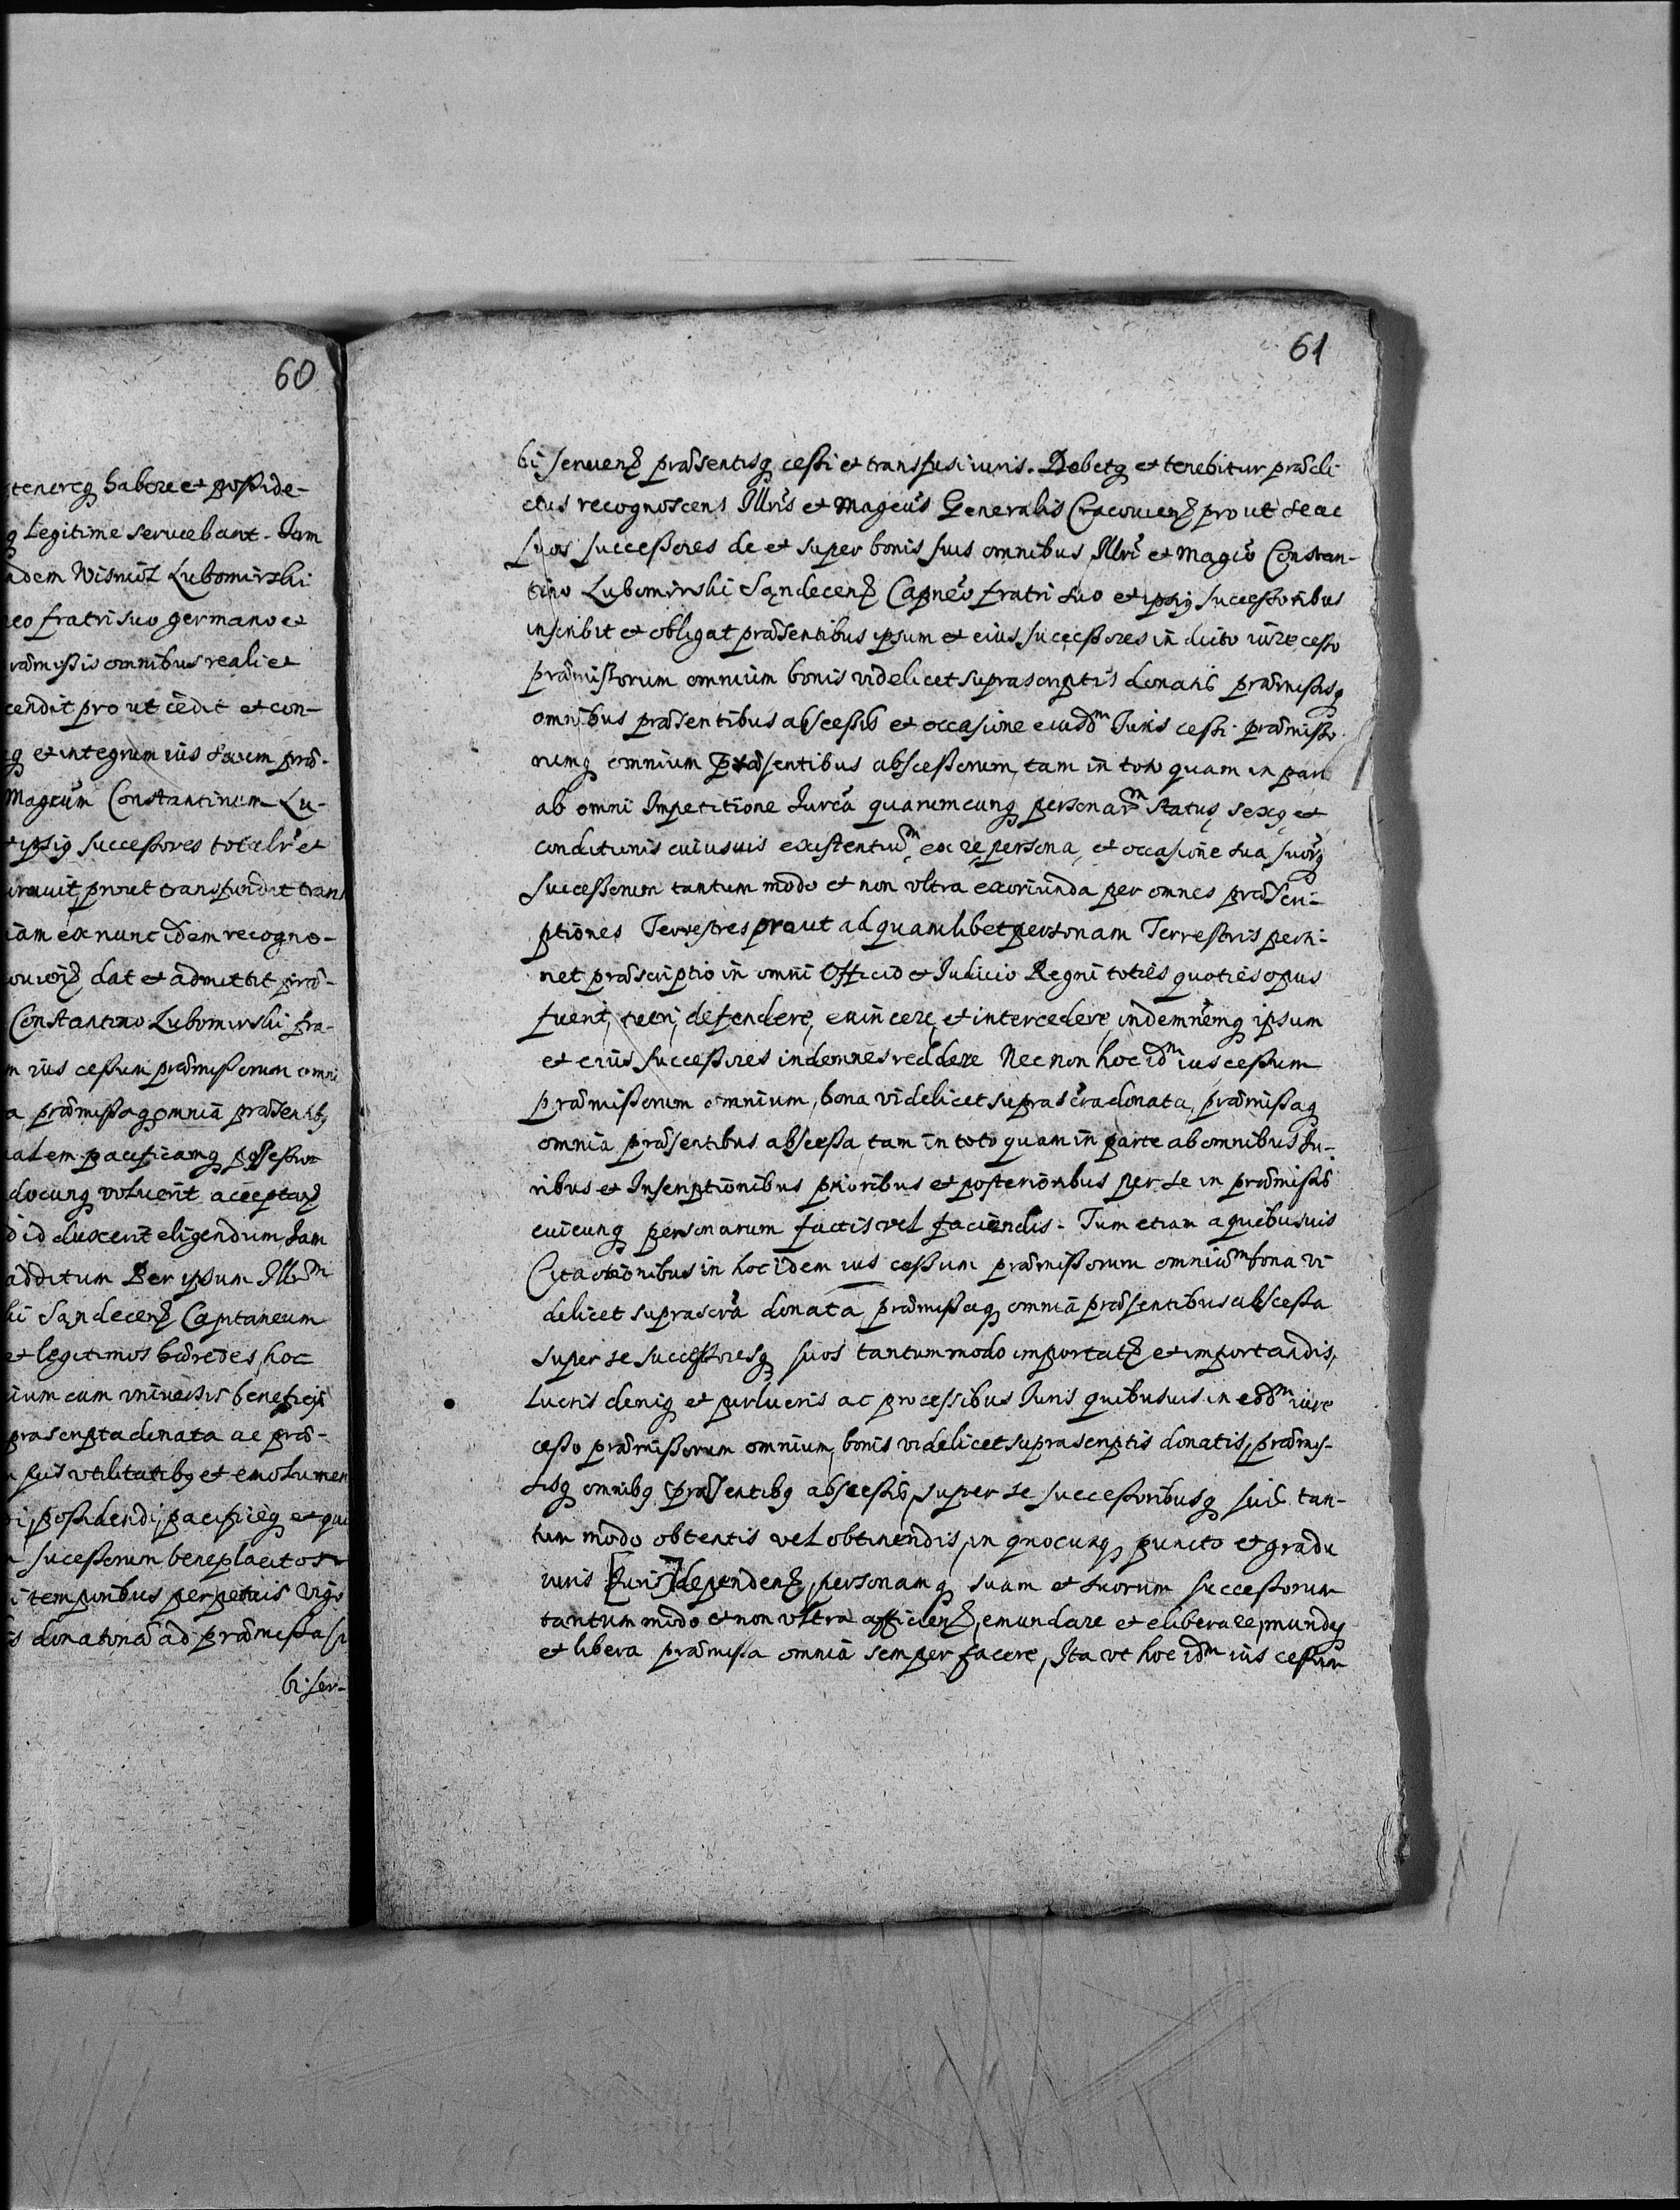 60
tenereq habere et posside-
q Legitime serviebant. Jam
adem Wisnicz Lubomirski
neo fratri suo germano et
præmissis omnibus reali et
cendit prout cedit et con-
q et integrum ius suum præ-
Magcum Constantinum Lu-
ipsiq successores totalr et
prout transfundit trans
iam ex nunc idem recogno-
dat et admittit præ-
Constantino Lubomirski fra-
m ius cessum præmissorum omni
a præmissaq omnia præsentib9
alem pacificamq possessio
docunq voluerit
id duxerit eligendum Jam
additum Per ipsum Illrm
ki Sandecen Capitaneum
et legitimos hæredes, hoc
ium cum universis beneficijs
prascripta donata ac præ-
suis utilitatib9 et emolumen
possidendi, pacificeq et qui
successorum beneplacito
temporibus perpetuis
donationē ad præmissa si
bi ser-
61
bi servien præsentisq cessi et transfusi iuris. Debetq et tenebitur prædi-
ctus recognoscens Illris et Magcus Generalis Cracovien prout se ac
suos successores de et super bonis suis omnibus Illri et Magco Constan-
tino Lubomirski Sandecen Capneo fratri suo et ipsiq successoribus
inscribit et obligat præsentibus ipsum et eius successores in dicto iure cesso
præmissorum omnium bonis videlicet suprascriptis donatis præmissisq
omnibus præsentibus abscessis et occasione eiusdm Juris cessi præmisso-
rumq omnium præsentibus abscessorum, tam in toto quam in parte
ab omni Impetitione Jurca quarumcunq personarm status sexq et
conditionis cuiusvis existentium ex re persona, et occasione sua suorq
successorum tantum modo et non ultra exoriunda per omnes præscri-
ptiones Terrestres prout ad quamlibet personam Terrestris perti-
net præscriptio in omni Officio et Judicio Regni toties quoties opus
fuerit, tueri, defendere, evincere, et intercedere, indemnemq ipsum
et eius successores indemnes reddere Nec non hoc idm ius cessum
præmissorum omnium, bona videlicet suprascra donata, præmissaq
omnia præsentibus abscessa, tam in toto quam in parte ab omnibus Ju-
ribus et Inscriptionibus prioribus et posterioribus per se in præmissis
cuicunq personarum factis vel faciendis. Tum etiam a quibusvis
Citationibus in hoc idem ius cessum præmissorum omnium bona vi
delicet suprascra donata præmissaq omnia præsentibus abscessa
super se successoresq suos tantummodo importat et importandis,
Lucris deniq et perlucris ac processibus Juris quibusvis in eodm iure
cesso præmissorum omnium, bonis videlicet suprascriptis donatis, præmis-
sisq omnib9 præsentib9 abscessis, super se successoribusq suis tan-
tum modo obtentis vel obtinendis, in quocunq puncto et gradu
iuris [Juris] dependen, personamq suam et suorum successorum
tantummodo et non ultra afficien, emundare et eliberare, munda
et libera præmissa omnia semper facere, Ita ut hoc idm ius cessum